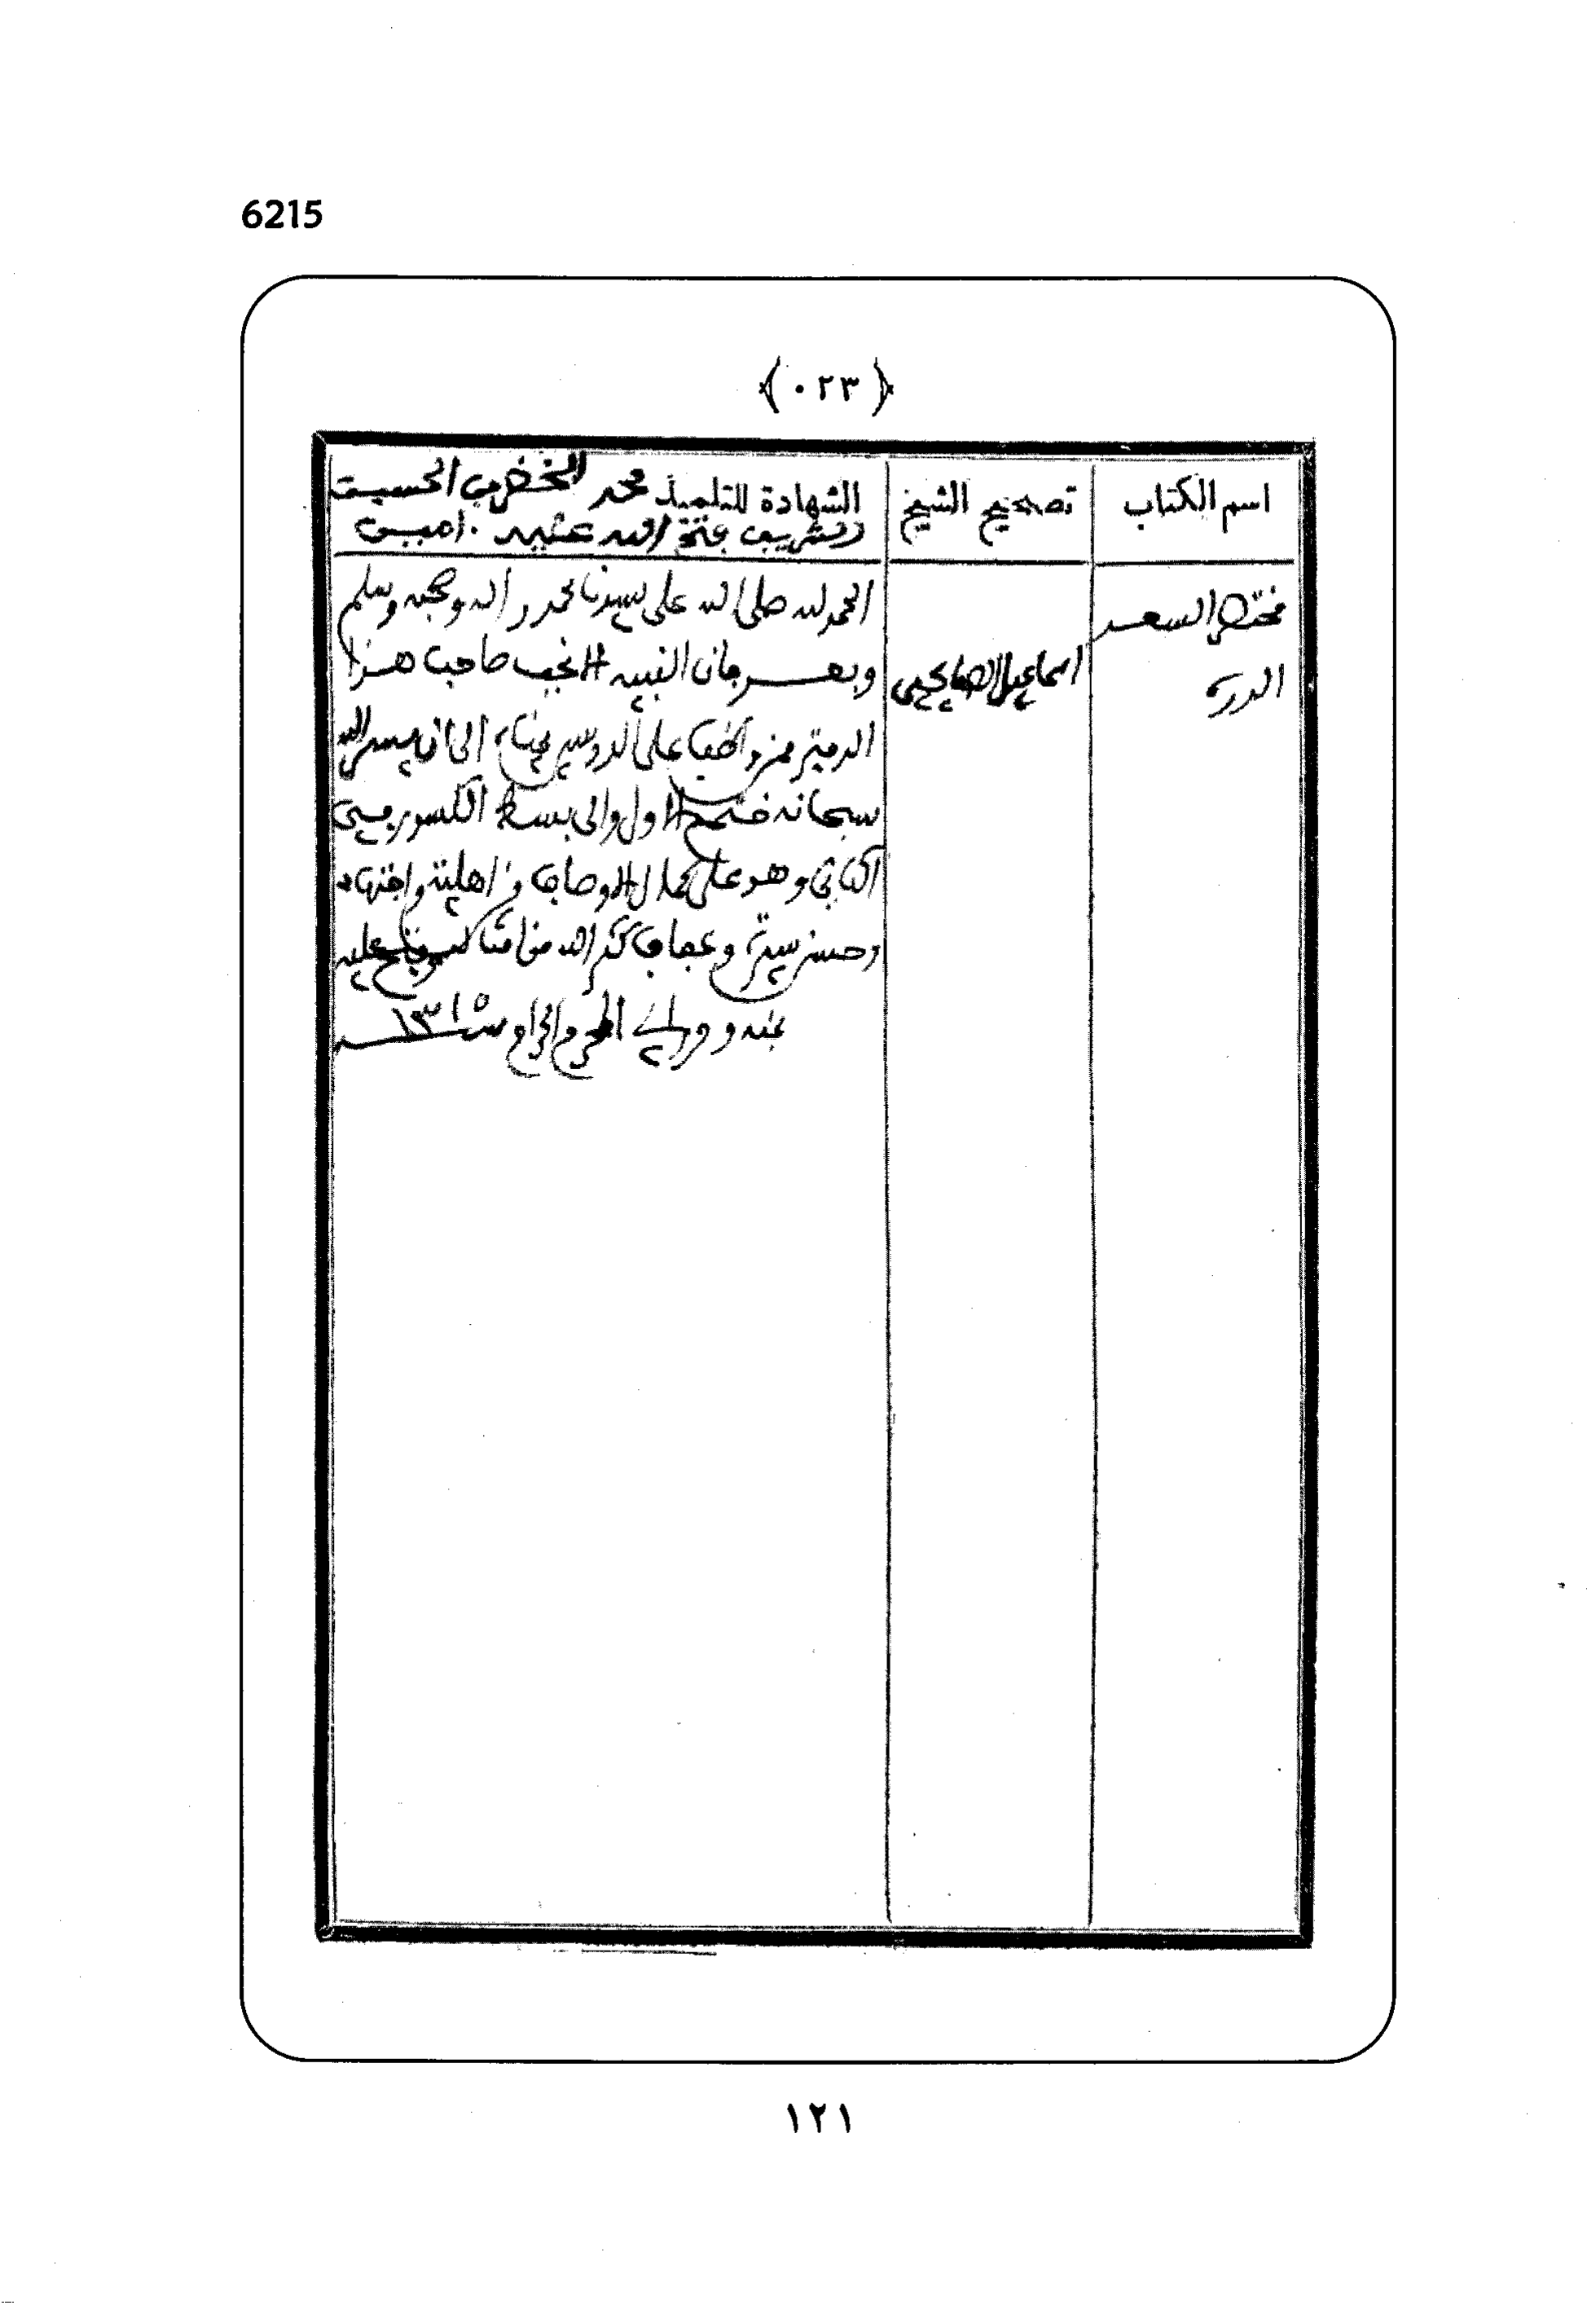 6215
(٠٢٣)
اسم الكتاب
تصحيح الشيخ
الشهادة للتلميذ محمد الخضر بن الحسين
الشريف فتح الله عليه امين
مختصر السعد
الدرة
اسماعيل الصفايحي
الحمد لله صلى الله على سيدنا محمد واله وصحبه وسلم
وبعد فان النبيه الانجب صاحب هذا
الدفتر ممن واظب على الدروس الى ان يسر الله
سبحانه ختم الاول والى بسط الكسور من
الثاني وهو على كمال الاوصاف في اهلية واجتهاد
وحسن سيرة وعفاف كثر الله من امثاله وفتح عليه
بمنه وفي المحرم الحرام سنة ١٣١٥
١٢١